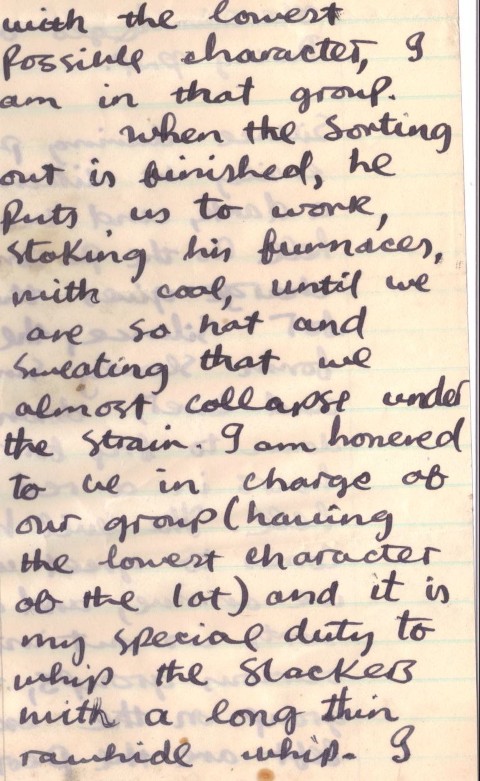 with the lowest
possible character, I
am in that group.
when the sorting
out is finished, he
puts us to work,
stoking his furnaces,
with coal, until we
are so hot and
sweating that we
almost collapse under
the strain. I am honered
to be in charge of
our group (having
the lowest character
of the lot) and it is
my special duty to
whip the slackers
with a long thin
rawhide whip. I